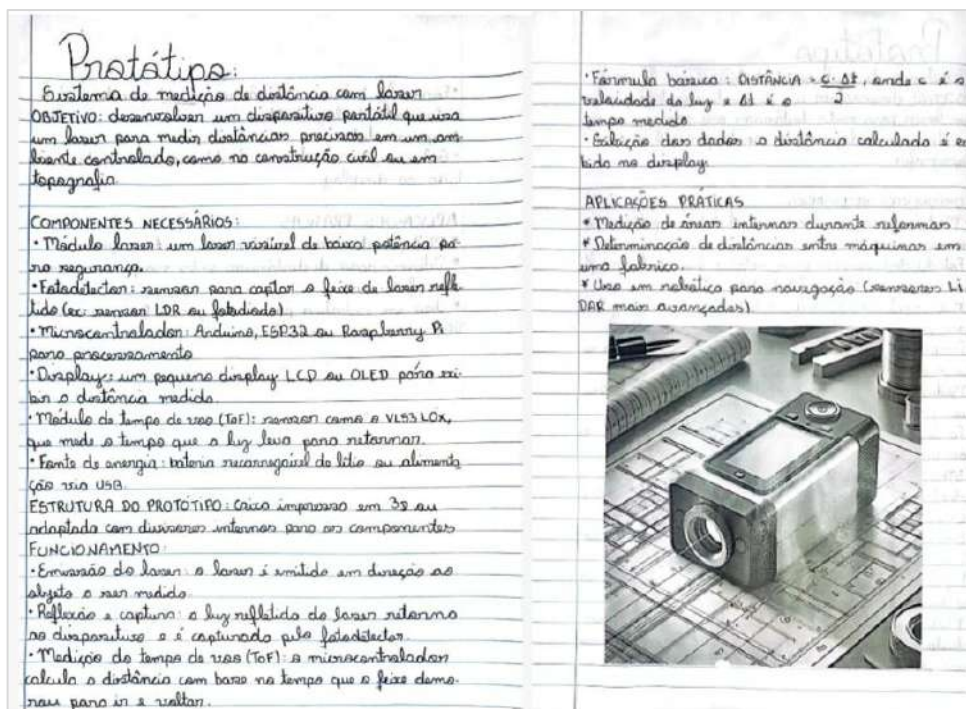 Protótipo:
Sistema de medição de distância com laser
OBJETIVO: desenvolver um dispositivo portátil que usa
um laser para medir distâncias precisas em um am
biente controlado, como na construção civil ou em
topografia.
COMPONENTES NECESSÁRIOS:
• Módulo laser: um laser visível de baixa potência pa-
ra segurança.
• Fotodetector: sensor para captar o feixe de laser refle
tido (ex: sensor LDR ou fotodiodo)
• Microcontrolador: Arduino, ESP32 ou Raspberry Pi
para processamento
• Display: um pequeno display LCD ou OLED para exi-
bir a distância medida.
• Módulo de tempo de voo (ToF): sensor como o VL53L0x,
que mede o tempo que a luz leva para retornar.
• Fonte de energia: bateria recarregável de lítio ou alimenta
ção via USB.
ESTRUTURA DO PROTÓTIPO: Caixa impressa em 3D ou
adaptada com divisores internos para os componentes
FUNCIONAMENTO:
• Emissão do laser: o laser é emitido em direção ao
objeto a ser medido.
• Reflexão e captura: a luz refletida do laser retorna
ao dispositivo e é capturada pelo fotodetector.
• Medição do tempo de voo (ToF): o microcontrolador
calcula a distância com base no tempo que o feixe demo-
rou para ir e voltar.
• Fórmula básica: DISTÂNCIA = c · Δt / 2, onde c é a
velocidade da luz e Δt é o
tempo medido
• Exibição dos dados: a distância calculada é exi
bida no display.
APLICAÇÕES PRÁTICAS
* Medição de áreas internas durante reformas
* Determinação de distâncias entre máquinas em
uma fábrica.
* Uso em robótica para navegação (sensores Li
DAR mais avançados)